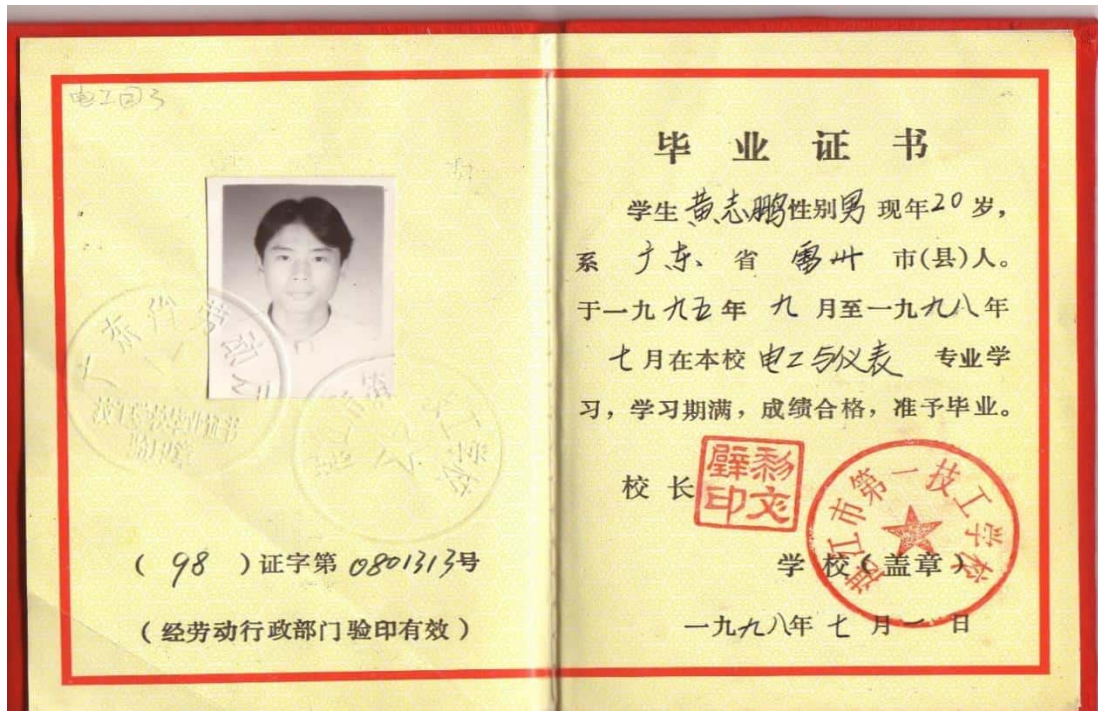 电工回3
广东省劳动厅
技工学校毕业证书
验印章
湛江市第一技工学校
( 98 ) 证字第 0801313号
( 经劳动行政部门验印有效 )
毕 业 证 书
学生 黄志鹏 性别 男 现年 20 岁，
系 广东 省 雷州 市(县)人。
于一九 九五 年 九 月至一九 九八 年
七 月在本校 电工与仪表 专业学
习，学习期满，成绩合格，准予毕业。
校 长
湛江市第一技工学校
学 校（盖章）
一九 九八 年 七 月 一 日